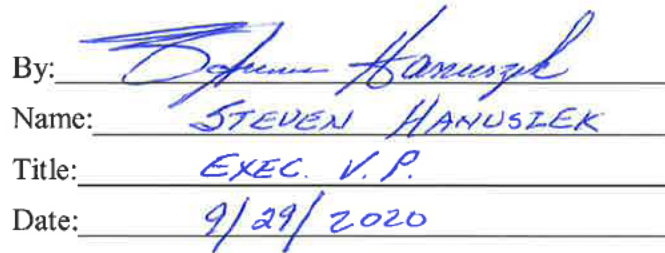 By: Steven Hanuszek
Name: STEVEN HANUSZEK
Title: EXEC. V.P.
Date: 9/29/2020